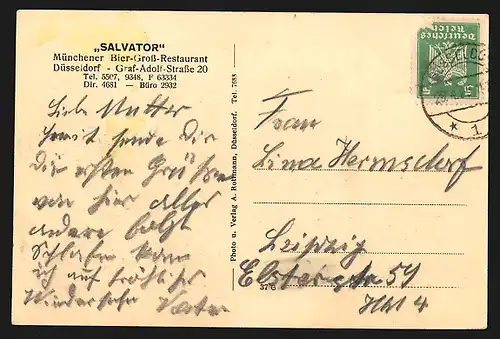 „SALVATOR"
Münchener Bier-Groß-Restaurant
Düsseldorf - Graf-Adolf-Straße 20
Tel. 5507, 9348, F 63334
Dir. 4681 — Büro 2932
Liebe Mutter
somit sende Dir
die ersten Grüße
von hier alles
andere
Schlafen
ich auf fröhliches
Wiedersehn Vater
Photo u. Verlag A. Rottmann, Düsseldorf. Tel. 7688
3776
Deutsches
Reich
5
* 1
Frau
Lina Hermsdorf
Leipzig
Elsterstr 59